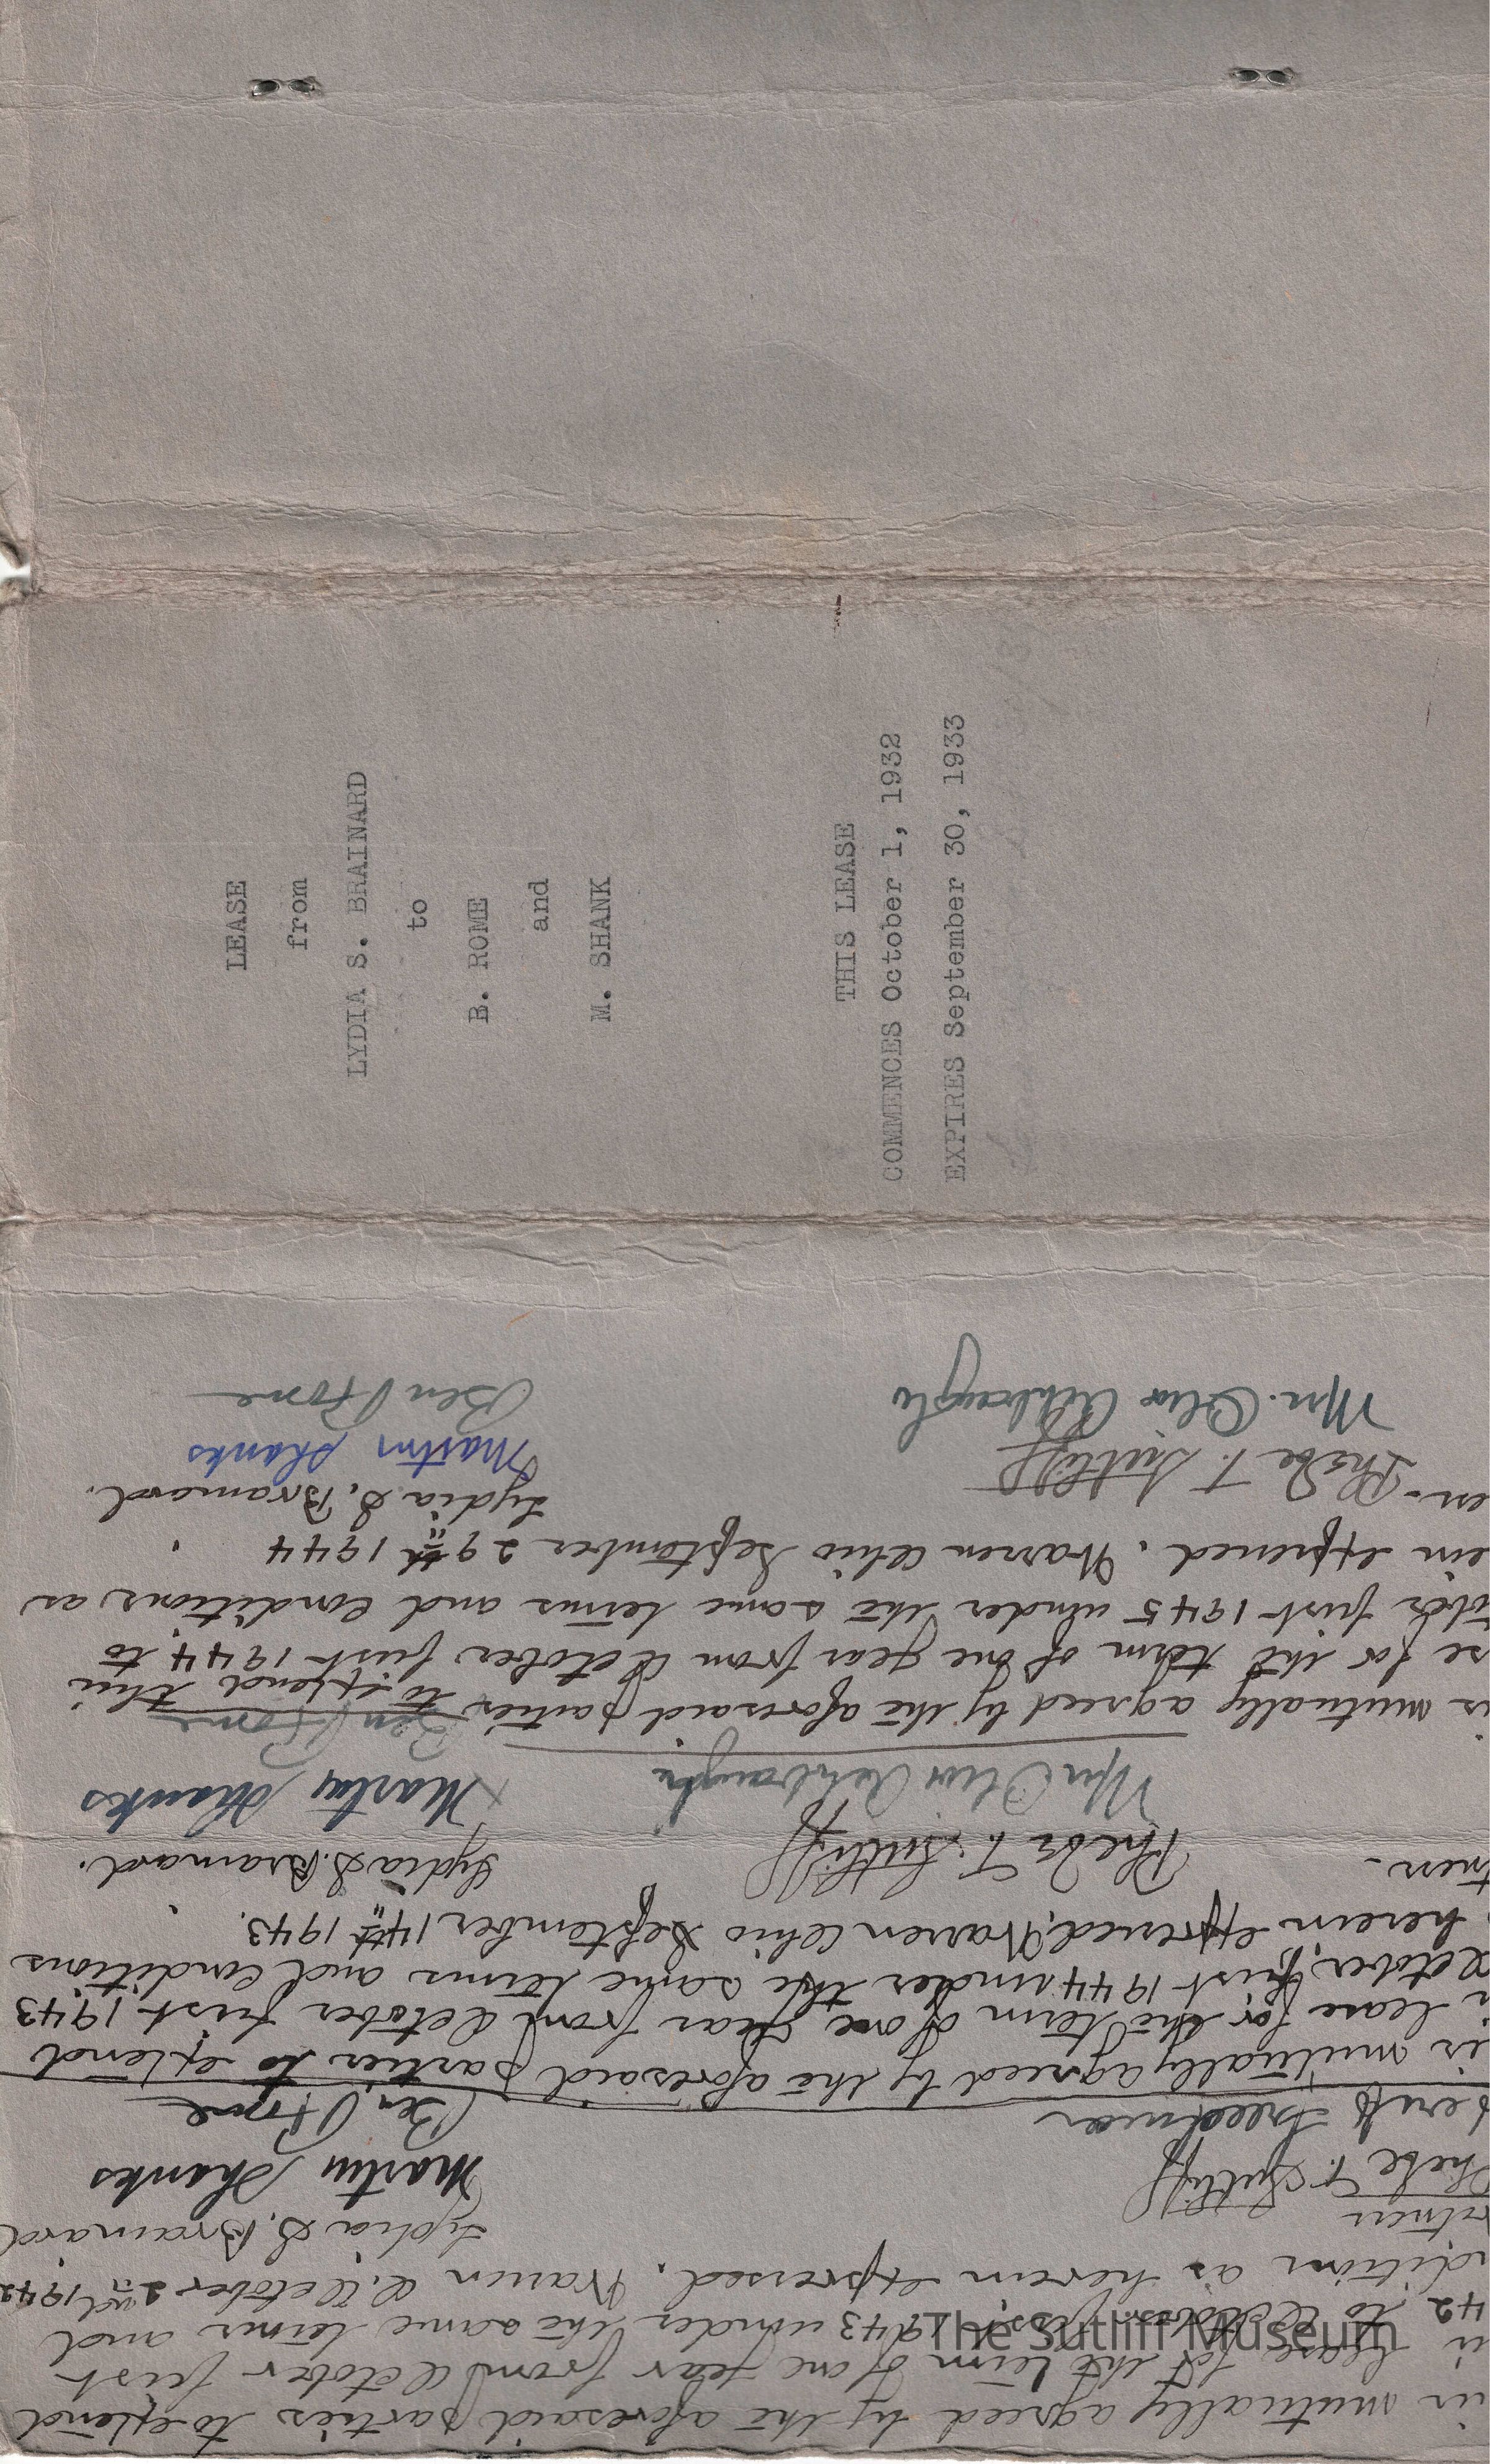 LEASE
from
LYDIA S. BRAINARD
to
B. ROME
and
M. SHANK
THIS LEASE
COMMENCES October 1, 1932
EXPIRES September 30, 1933
is mutually agreed by the aforesaid parties to extend
lease for the term of one year from October first
42 to October first 1943 under the same terms and
dition as herein expressed. Warren O. October 2nd 1942
etness
Lydia S. Brainard
Phebe T. Sutliff
Martin Shanks
Freedman
Ben Rome
is mutually agreed by the aforesaid parties to extend
lease for the term of one year from October first 1943
October first 1944 under the same terms and conditions
herein expressed, Warren Ohio September 14th 1943.
tness -
Phebe T. Sutliff
Lydia S. Brainard.
Mrs Olive
Martin Shanks
Ben Rome
is mutually agreed by the aforesaid parties to extend this
se for the term of one year from October first 1944 to
tober first 1945 under the same terms and conditions as
ein expressed. Warren Ohio September 29th 1944
Lydia S. Brainard.
Phebe T. Sutliff
Martin Shanks
Mrs. Olive
Ben Rome
The Sutliff Museum